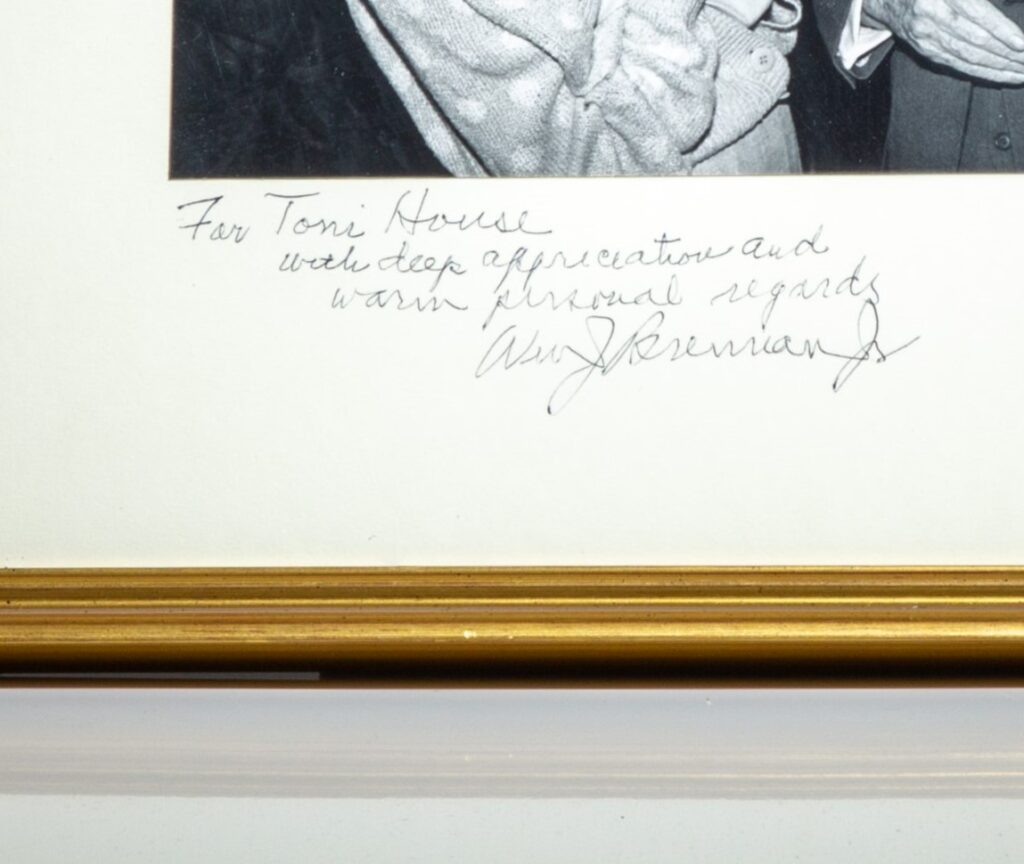 For Toni House
with deep appreciation and
warm personal regards
Wm J Brennan Jr